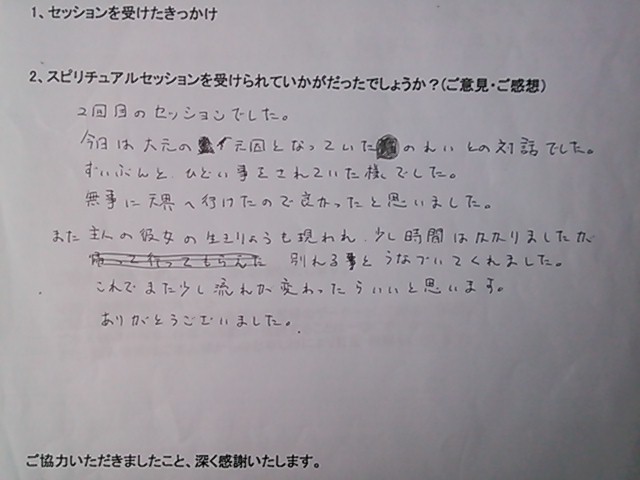 1、セッションを受けたきっかけ
2、スピリチュアルセッションを受けられていかがだったでしょうか？(ご意見・ご感想)
2回目のセッションでした。
今日は大元の 元因となっていた のれいとの対話でした。
ずいぶんと ひどい事をされていた様でした。
無事に天界へ行けたので良かったと思いました。
また主人の彼女の生きりょうも現われ、少し時間はかかりましたが
帰って行ってもらえた 別れる事とうなづいてくれました。
これでまた少し流れが変わったらいいと思います。
ありがとうございました。
ご協力いただきましたこと、深く感謝いたします。